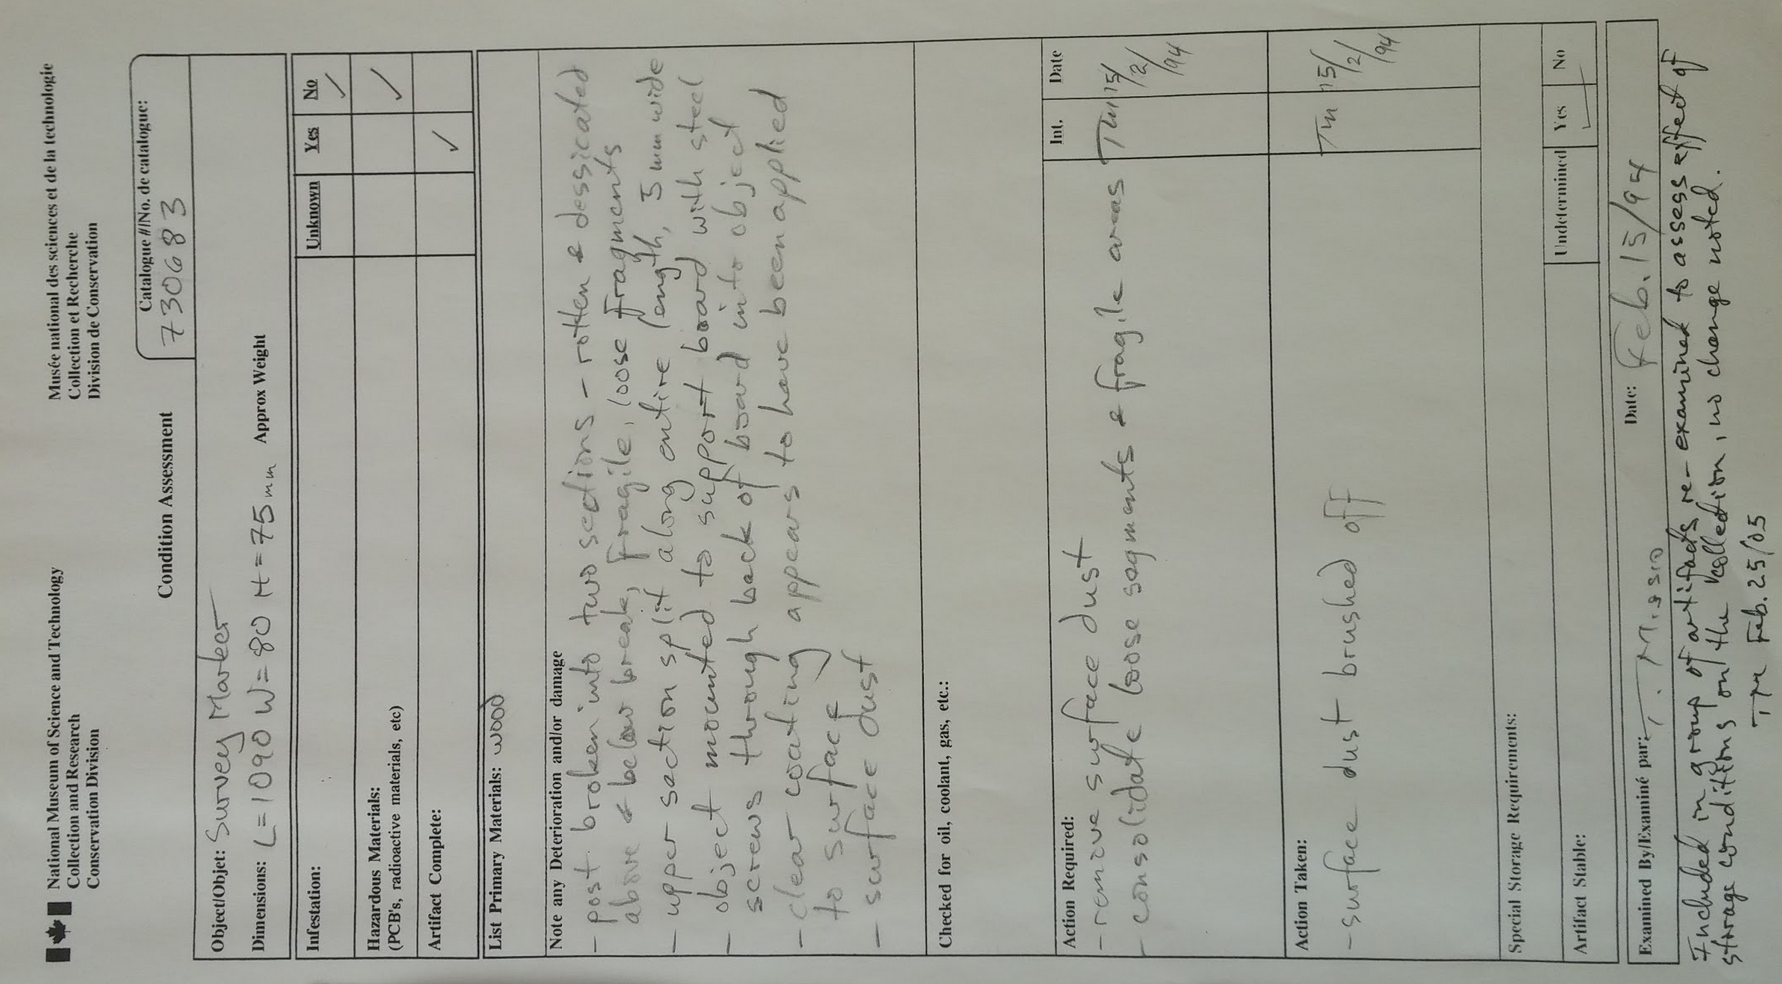 National Museum of Science and Technology
Collection and Research
Conservation Division
Musée national des sciences et de la technologie
Collection et Recherche
Division de Conservation
Condition Assessment
Catalogue #/No. de catalogue:
730683
Object/Objet: Survey Marker
Dimensions: L=1090 W=80 H=75mm Approx Weight
Unknown Yes No
Infestation: ✓
Hazardous Materials: ✓
(PCB's, radioactive materials, etc)
Artifact Complete: ✓
List Primary Materials: wood
Note any Deterioration and/or damage
- post broken into two sections - rotten & dessicated
above & below break, fragile, loose fragments
- upper section split along entire length, 5mm wide
- object mounted to support board with steel
screws through back of board into object
- clear coating appears to have been applied
to surface
- surface dust
Checked for oil, coolant, gas, etc.:
Action Required: Int. Date
- remove surface dust
- consolidate loose segments & fragile areas TM 15/2/94
Action Taken:
- surface dust brushed off TM 15/2/94
Special Storage Requirements:
Artifact Stable: Undetermined Yes No
Examined By/Examiné par: T. Missio Date: Feb. 15/94
Included in group of artifacts re-examined to assess effect of
storage conditions on the collection, no change noted.
TM Feb. 25/05